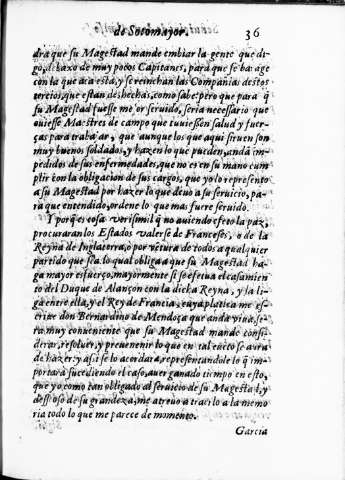 de Sotomayor. 36
dra que su Magestad mande embiar la gente que di-
go, debaxo de muy pocos Capitanes, para que se haage
con la que aca està, y se reinchan las Compañias destos
tercios, que estan deshechas, como sabe: pero que para q̃
su Magestad fuesse mejor seruido, seria necessario que
ouiesse Maestres de campo que tuuiessen salud y fuer-
ças para trabajar, que aunque los que aqui siruen son
muy buenos soldados, y hazen lo que pueden, andã im-
pedidos de sus enfermedades, que no es en su mano cum
plir con la obligacion de sus cargos, que yo lo represento
a su Magestad por hazer lo que deuo a su seruicio, pa-
ra que entendido, ordene lo que mas fuere seruido.
Y porque es cosa verisimil q̃ no auiendo efeto la paz,
procuraran los Estados valerse de Franceses, o de la
Reyna de Inglaterra, o por vẽtura de todos a qualquier
partido que sea, lo qual obliga a que su Magestad ha-
ga mayor esfuerço, mayormente si se efetua el casamien
to del Duque de Alançon con la dicha Reyna, y la li-
ga entre ella, y el Rey de Francia, cuya platica me es-
criue don Bernardino de Mendoça que anda viua, se-
ra muy conueniente que su Magestad mande consi-
derar, resoluer, y preuenir lo que en tal euẽto se aura
de hazer: y assi se lo acordarà, representandole lo q̃ im-
portarà sucediendo el caso, auer ganado tiempo en esto,
que yo como tan obligado al seruicio de su Magestad, y
desseoso de su grandeza, me atreuo a traerlo a la memo
ria todo lo que me parece de momento.
Garcia